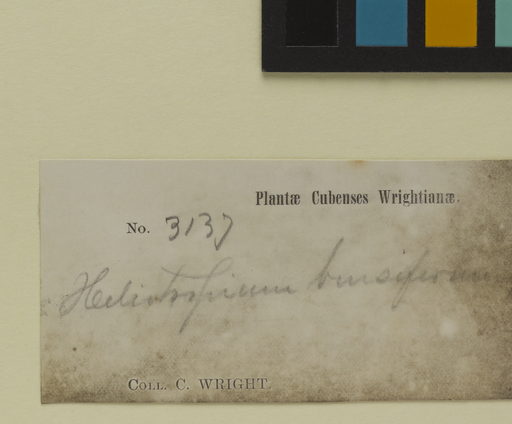 Plantæ Cubenses Wrightianæ.
No. 3137
Heliotropium bursiferum
Coll. C. WRIGHT.